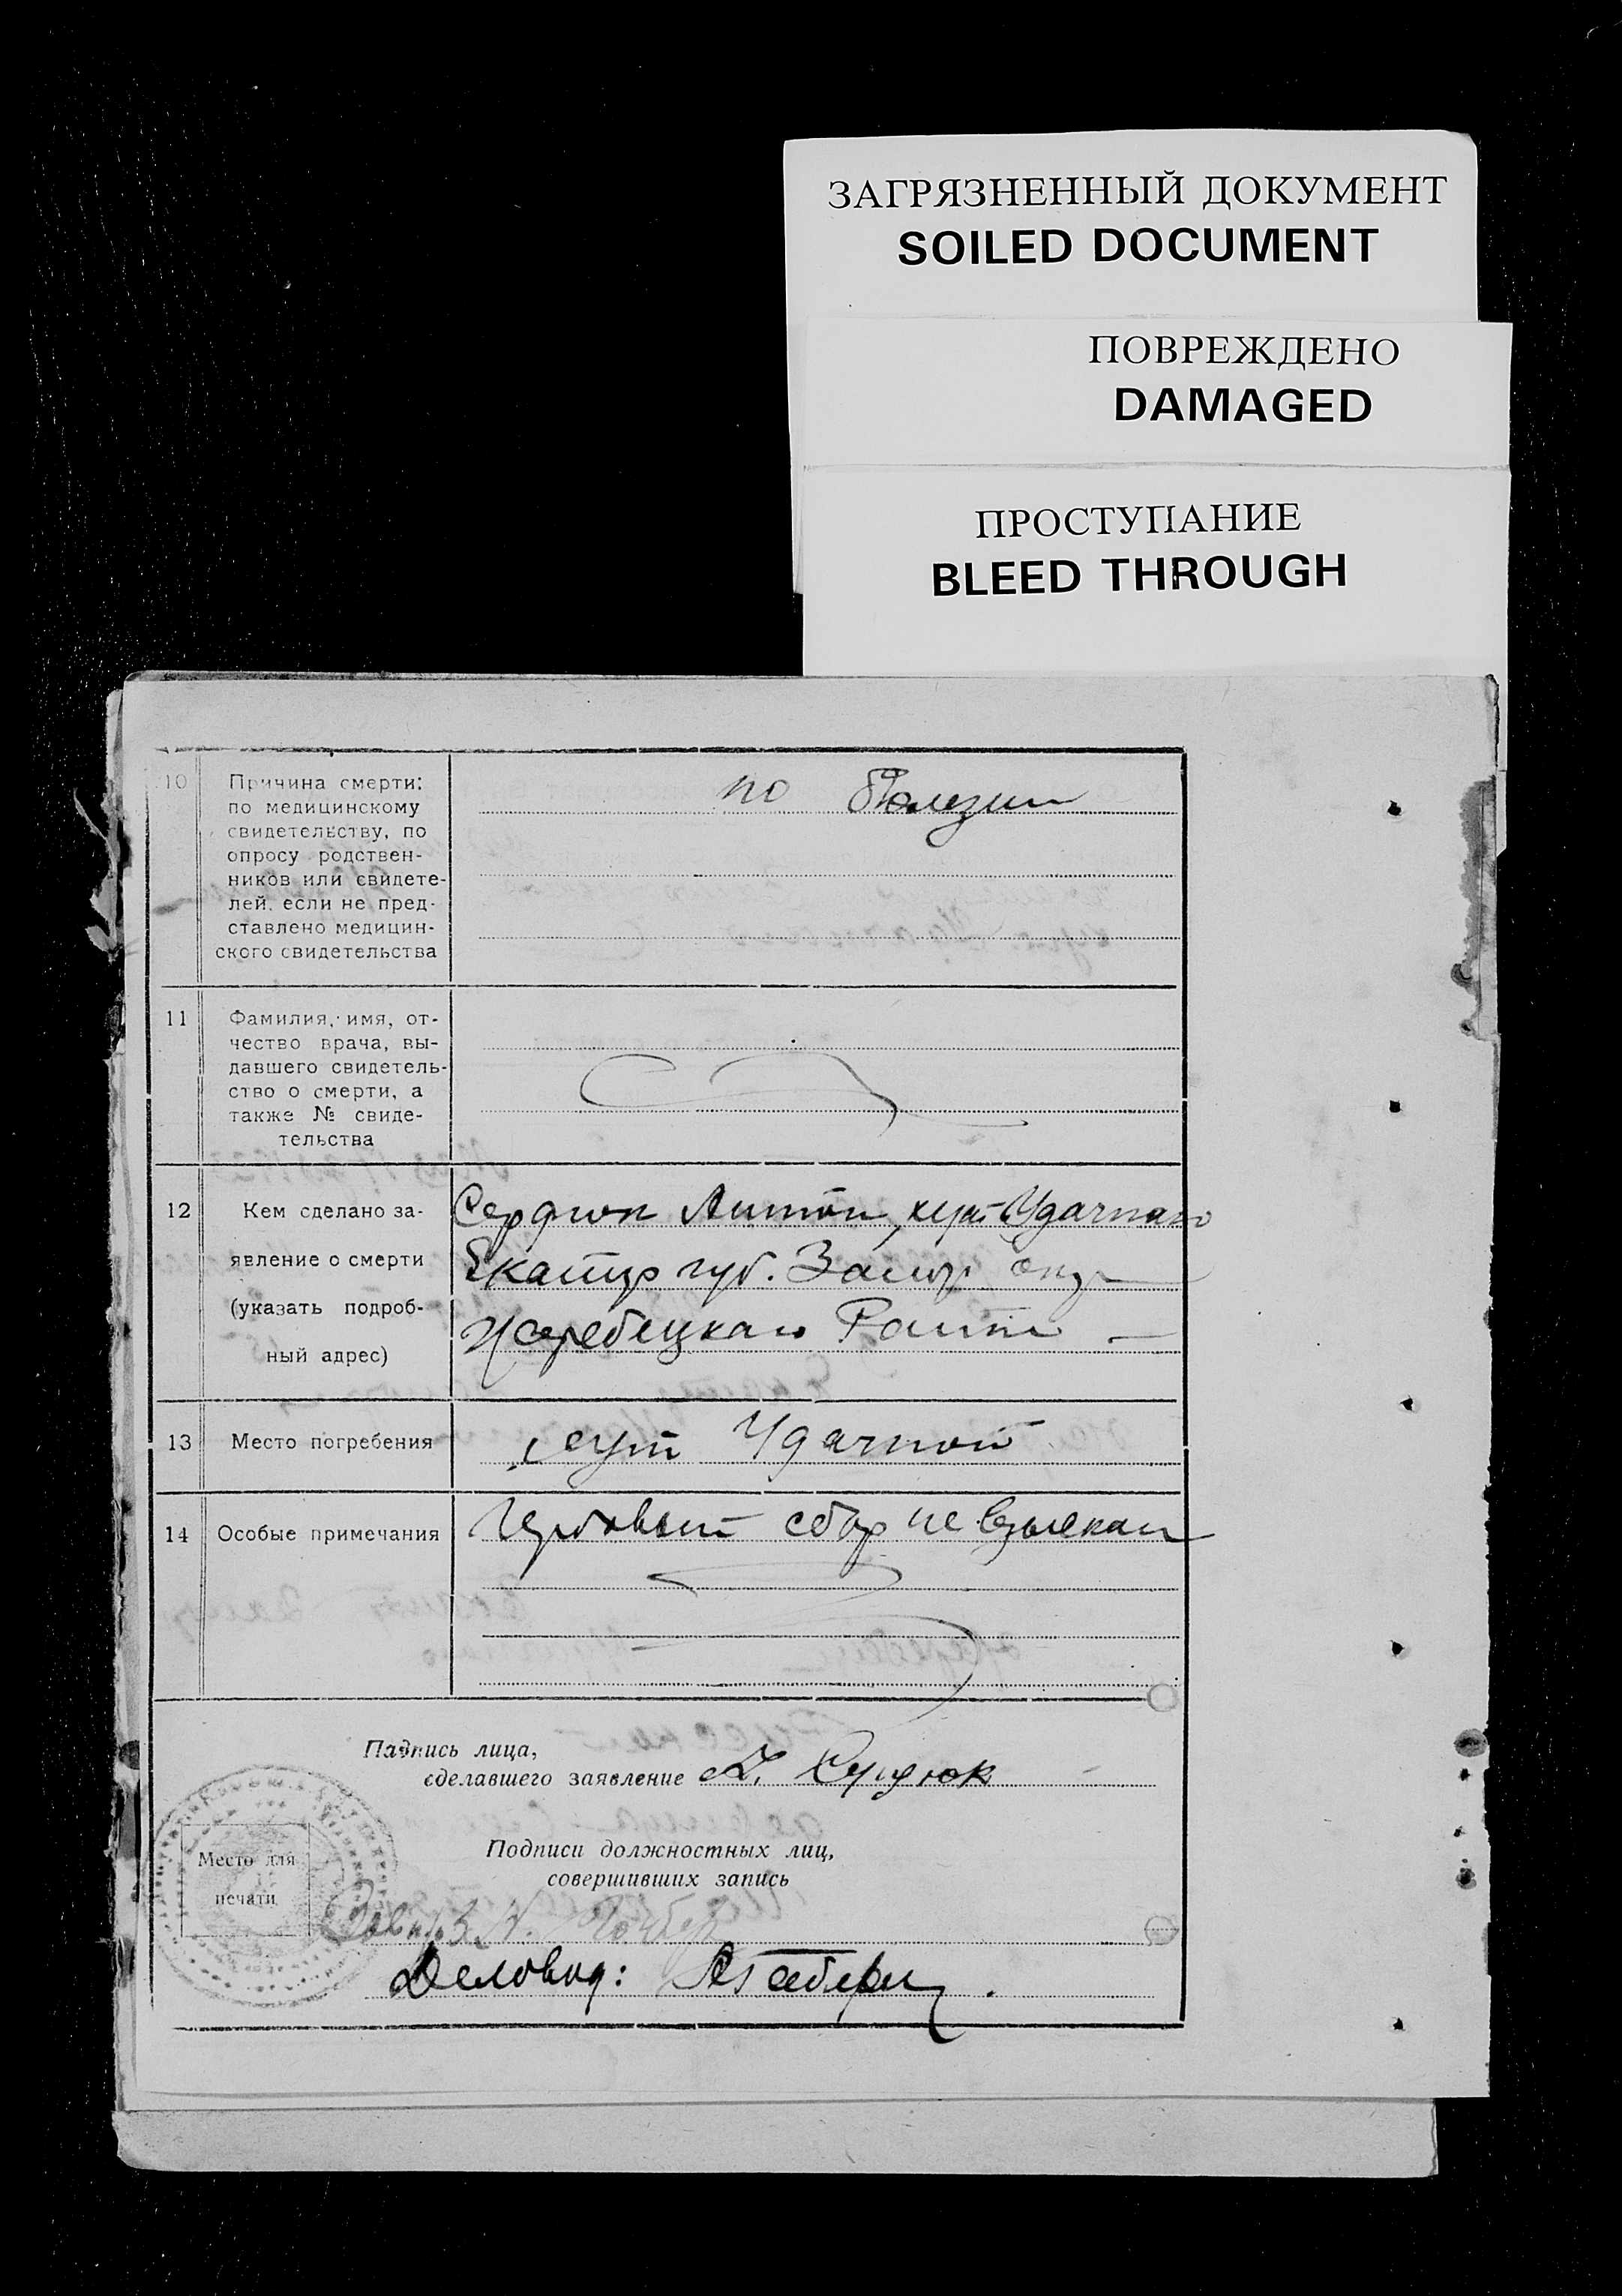 ЗАГРЯЗНЕННЫЙ ДОКУМЕНТ
SOILED DOCUMENT
ПОВРЕЖДЕНО
DAMAGED
ПРОСТУПАНИЕ
BLEED THROUGH
10
Причина смерти:
по медицинскому
свидетельству, по
опросу родствен-
ников или свидете-
лей, если не пред-
ставлено медицин-
ского свидетельства
по болезни
11
Фамилия, имя, от-
чество врача, вы-
давшего свидетель-
ство о смерти, а
также № свиде-
тельства
12
Кем сделано за-
явление о смерти
(указать подроб-
ный адрес)
Сердюк Антон, хут Удачного
Екатер губ. Запор окр
Жеребецкаго Района
13
Место погребения
хут Удачной
14
Особые примечания
Гербовый сбор не взыскан
Падпись лица,
сделавшего заявление А. Сердюк
Подписи должностных лиц,
совершивших запись
Место для
печати
Деловод: